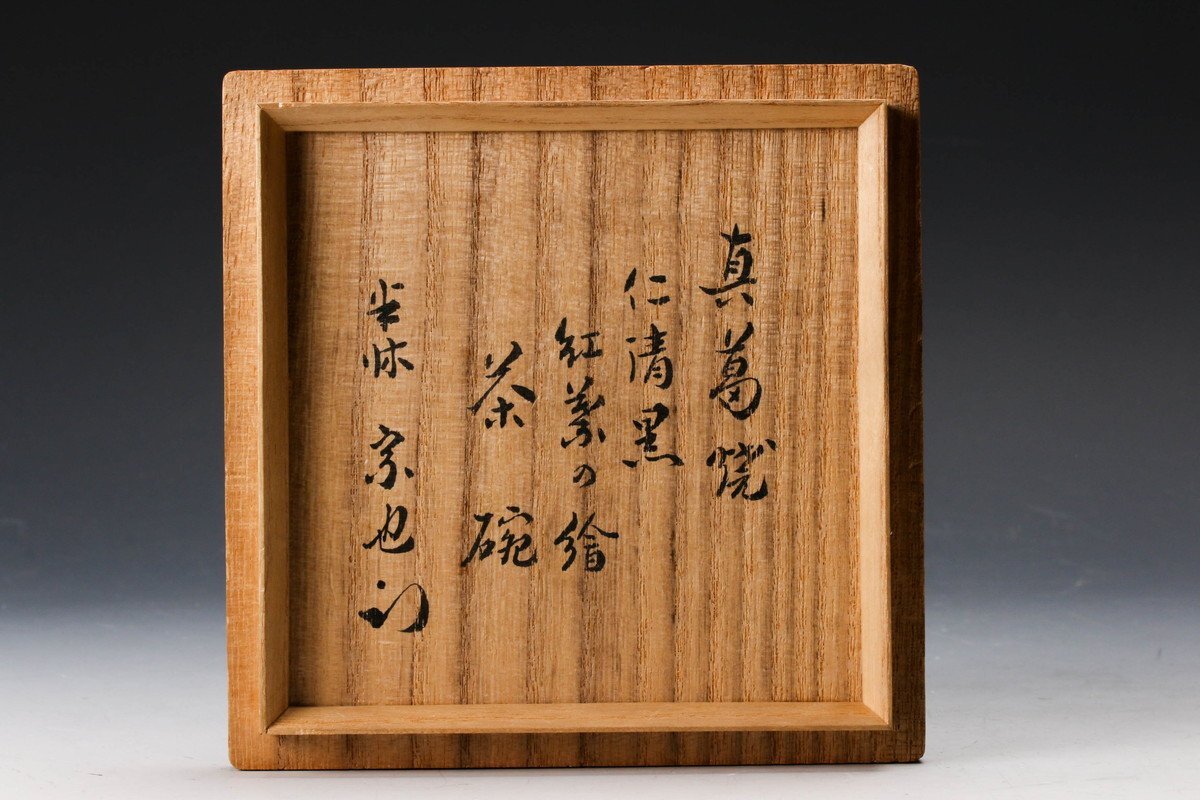 真葛焼
仁清黒
紅葉の繪
茶碗
半床 宗也